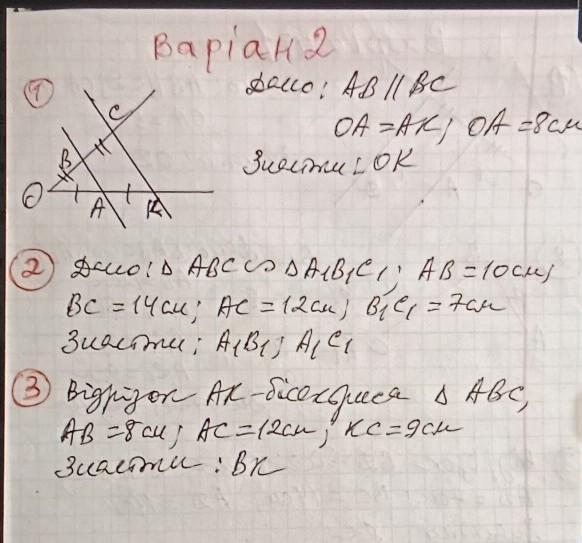 Варіан 2
① Дано: AB || BC
OA = AK; OA = 8 см
Знайти: OK
O B C A K
② Дано: Δ ABC ∽ Δ A₁B₁C₁; AB = 10 см;
BC = 14 см; AC = 12 см; B₁C₁ = 7 см
Знайти: A₁B₁; A₁C₁
③ Відрізок AK - бісектриса Δ ABC,
AB = 8 см; AC = 12 см; KC = 9 см
Знайти: BK